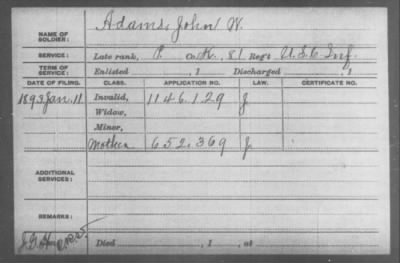 NAME OF SOLDIER: Adams, John W.
SERVICE: Late rank, P. Co. K., 81 Reg't U.S.C. Inf.
TERM OF SERVICE: Enlisted , 1 Discharged , 1
DATE OF FILING. CLASS. APPLICATION NO. LAW. CERTIFICATE NO.
1893 Jan. 11 Invalid, 1146.129 J.
Widow,
Minor,
Mother 652.369 J.
ADDITIONAL SERVICES:
REMARKS:
Died , 1 , at